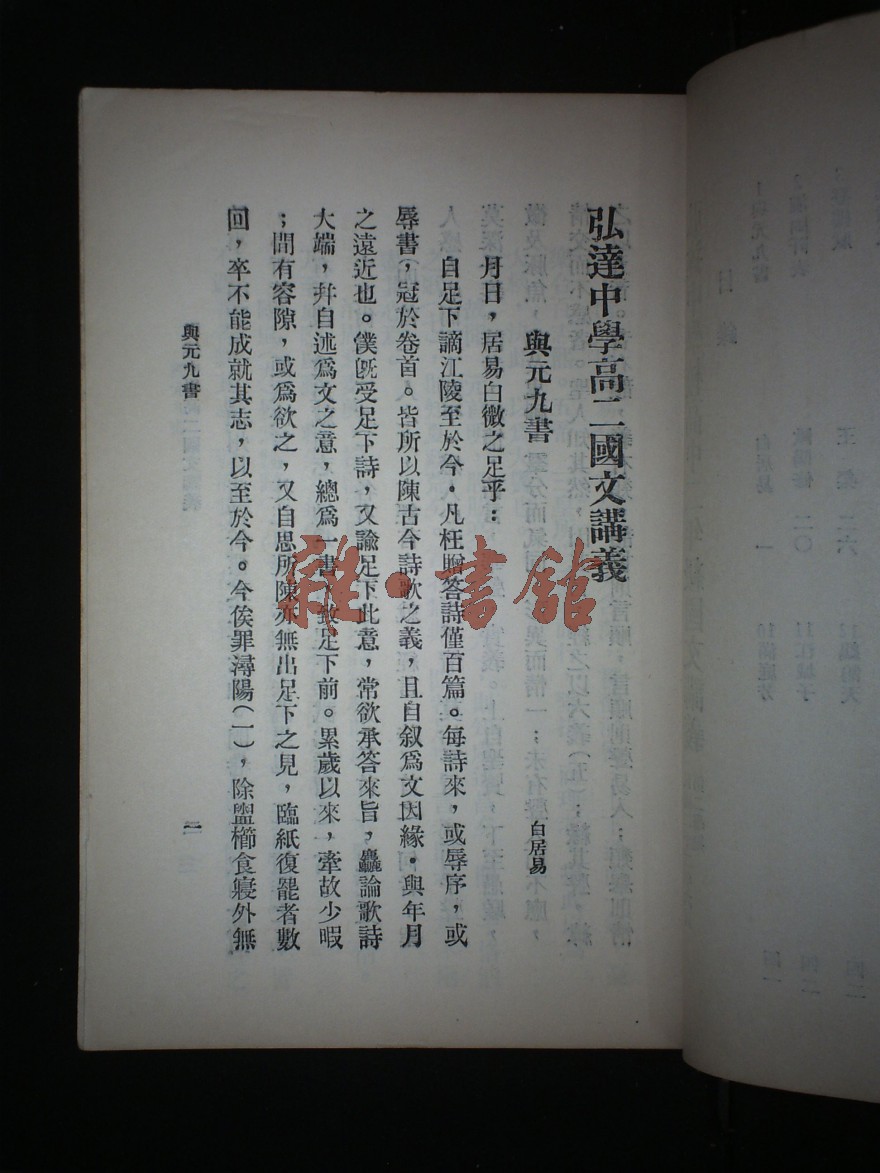 弘達中學高二國文講義
與元九書
白居易
月日，居易白微之足乎：
自足下謫江陵至於今．凡枉贈答詩僅百篇。每詩來，或辱序，或
辱書，冠於卷首。皆所以陳古今詩歌之義，且自叙爲文因緣．與年月
之遠近也。僕旣受足下詩，又諭足下此意，常欲承答來旨，麤論歌詩
大端，幷自述爲文之意，總爲一書，致足下前。累歲以來，牽故少暇
；間有容隙，或爲欲之，又自思所陳亦無出足下之見，臨紙復罷者數
回，卒不能成就其志，以至於今。今俟罪潯陽（一），除盥櫛食寢外無
與元九書
一
雜·書館
目錄